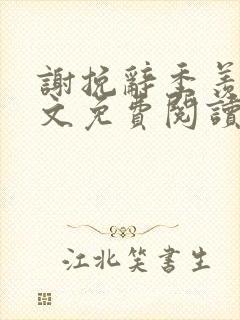 謝挽辭季羨
文免費閱讀
江北笑書生